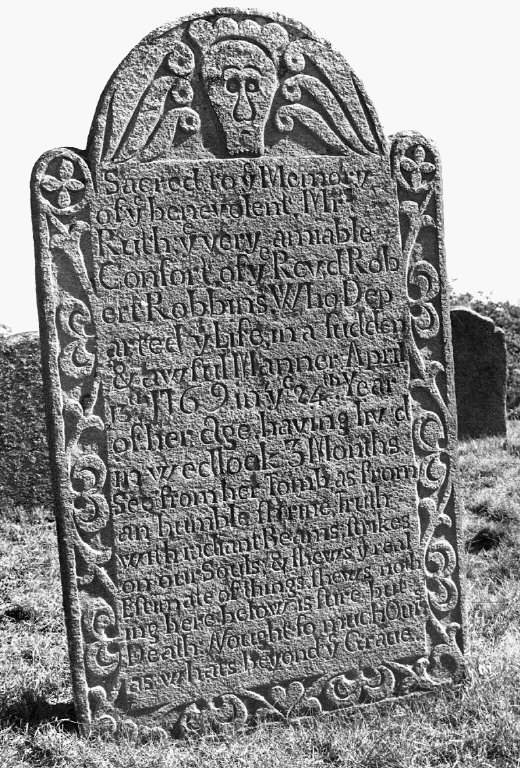 Sacred to yᵉ Memory
of yᵉ benevolent, Mʳˢ
Ruth: yᵉ very amiable
Confort of yᵉ Revᵈ Rob
ert Robbins: Who Dep
arted yˢ Life, in a sudden
& awful Manner. April
13ᵗʰ 1769 in yᵉ 24ᵗʰ Year
of her Age having liv'd
in wedlock 3 Months
See from her Tomb as from
an humble shrine, Truth
with radiant Beams, strikes
on our Souls; & shews yᵉ real
Estimate of things, shews noth
ing here below is sure but
Death. Nought so much Ours
as whats beyond yᵉ Grave.